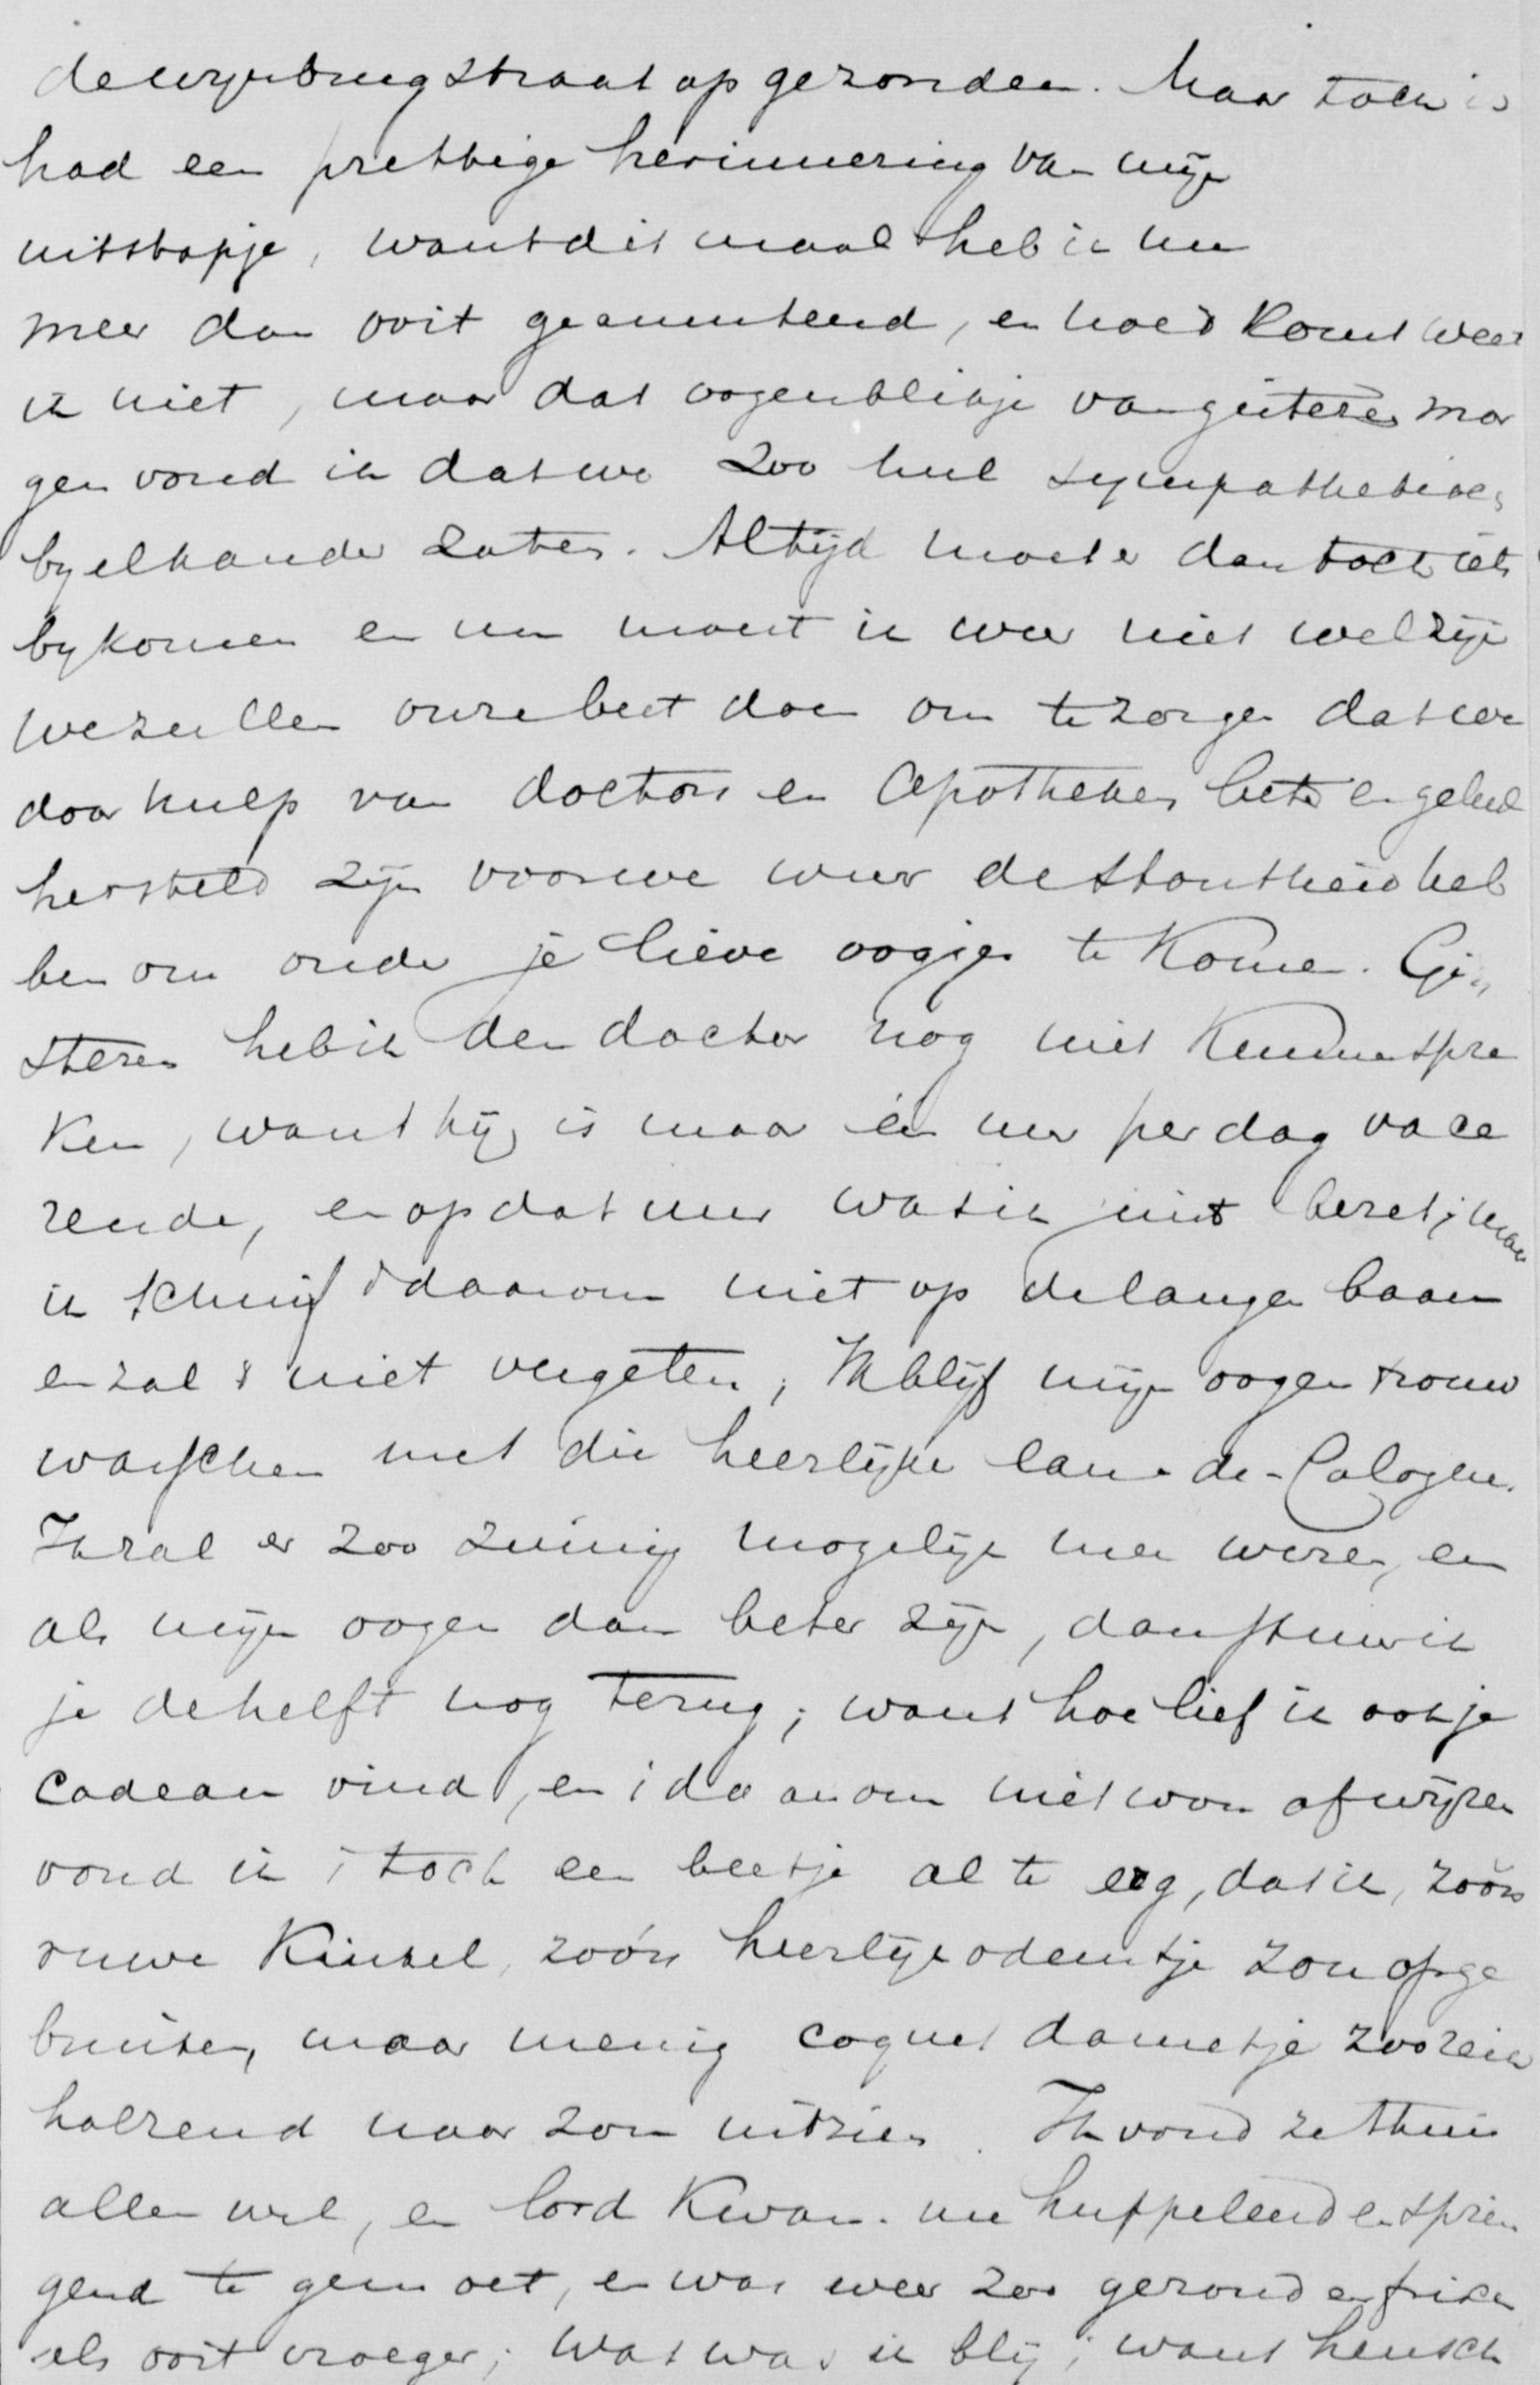 de wijnbrugstraat op gezonden. Maar toch ik
had een prettige herinnering van mijn
uitstapje, want dit maal heb ik me
meer dan ooit geamuseerd, en hoe't komt weet
ik niet, maar dat oogenblikje van gisteren mor
gen vond ik dat we zoo heel sympathetiek
by elkander zaten. Altijd moet er dan toch iets
bykomen en nu moest ik weer niet wel zijn
we zullen onze best doen om te zorgen dat we
door hulp van doctors en Apothekers beter en geheel
hersteld zijn voor we weer de stoutheid heb
ben om onder je lieve oogjes te komen. Gi„
steren heb ik den doctor nog niet kunnen spre
ken, want hij is maar één uur per dag vace
rende, en op dat uur was ik niet bezet; maar
ik schuif 't daarom niet op de lange baan
en zal 't niet vergeten; Ik blijf mijn oogen trouw
wasschen met die heerlijke eau-de-Cologne.
Ik zal er zoo zuinig mogelijk mee wezen, en
als mijn oogen dan beter zijn, dan stuur ik
je de helft nog terug; want hoe lief ik ook je
cadeau vind, en 't daarom niet wou afwijzen
vond ik 't toch een beetje al te erg, dat ik, zoo'n
ruwe kinkel, zoo'n heerlijk odeurtje zou opge
bruiken, waar menig coquet dametje zoo reik
halzend naar zou uitzien. Ik vond ze thuis
allen wel, en lord kwam me huppelend en sprin
gend te gemoet, en was weer zoo gezond en frisch
als ooit vroeger; Wat was ik blij; want heusch